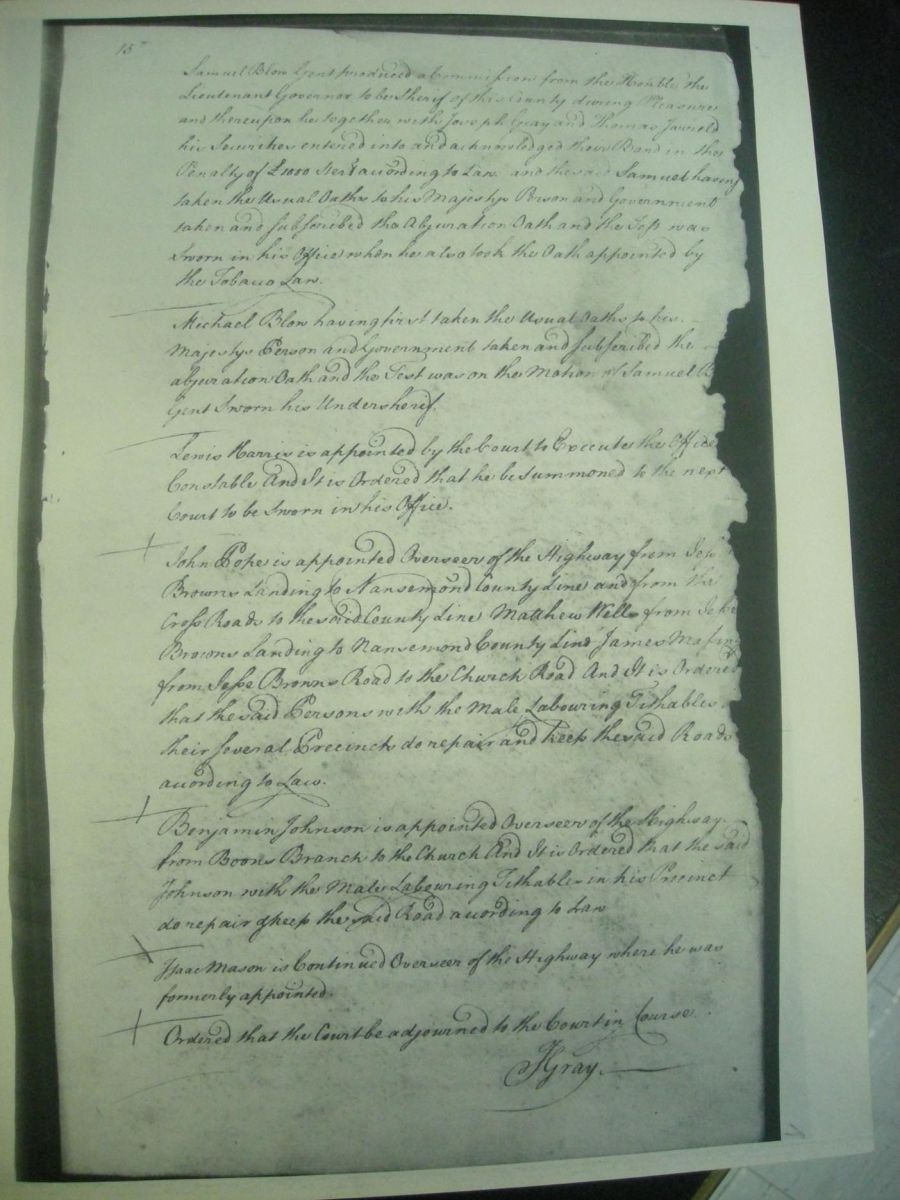 15
Samuel Blow Gent produced a Commission from the Honble the
Lieutenant Governor to be Sherif of this County during Pleasure
and thereupon he together with Joseph Gray and Thomas Jarrold
his Securities entered into and acknowledged their Bond in the
Penalty of £1000 Sterl according to Law and the said Samuel having
taken the Usual Oaths to his Majestys Person and Government
taken and subscribed the Abjuration Oath and the Test was
Sworn in his Office when he also took the Oath appointed by
the Tobacco Law.
Michael Blow having first taken the Usual Oaths to his
Majestys Person and Government taken and subscribed the
abjuration Oath and the Test was on the Motion of Samuel B
Gent Sworn his Undersherif.
Lewis Harris is appointed by the Court to Execute the Office
Constable And It is Ordered that he be Summoned to the next
Court to be Sworn in his Office.
John Pope is appointed Overseer of the Highway from Jes
Browns Landing to Nansemond County Line and from the
Cross Roads to the said County Line Matthew Wells from Jesse
Browns Landing to Nansemond County Line James Mason
from Jesse Browns Road to the Church Road And It is Ordered
that the said Persons with the Male Labouring Tithables
their several Precincts do repair and keep the said Roads
according to Law.
Benjamin Johnson is appointed Overseer of the Highway
from Boons Branch to the Church And It is Ordered that the said
Johnson with the Male Labouring Tithables in his Precinct
do repair & keep the said Road according to Law
Isaac Mason is Continued Overseer of the Highway where he was
formerly appointed.
Ordered that the Court be adjourned to the Court in Course.
JGray.